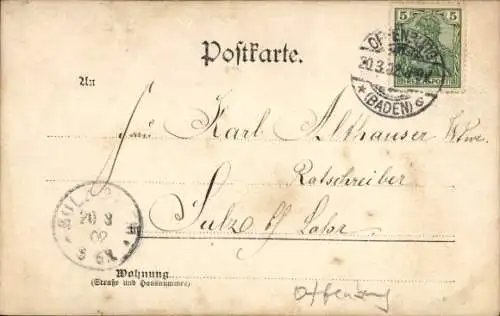 5 5
OFFENBURG
20.3.
(BADEN)
Postkarte.
An
Karl Althauser Wwe.
Ratschreiber
Sulz b/ Lahr.
SULZ
20 3
02
Wohnung
(Straße und Hausnummer)
Offenburg